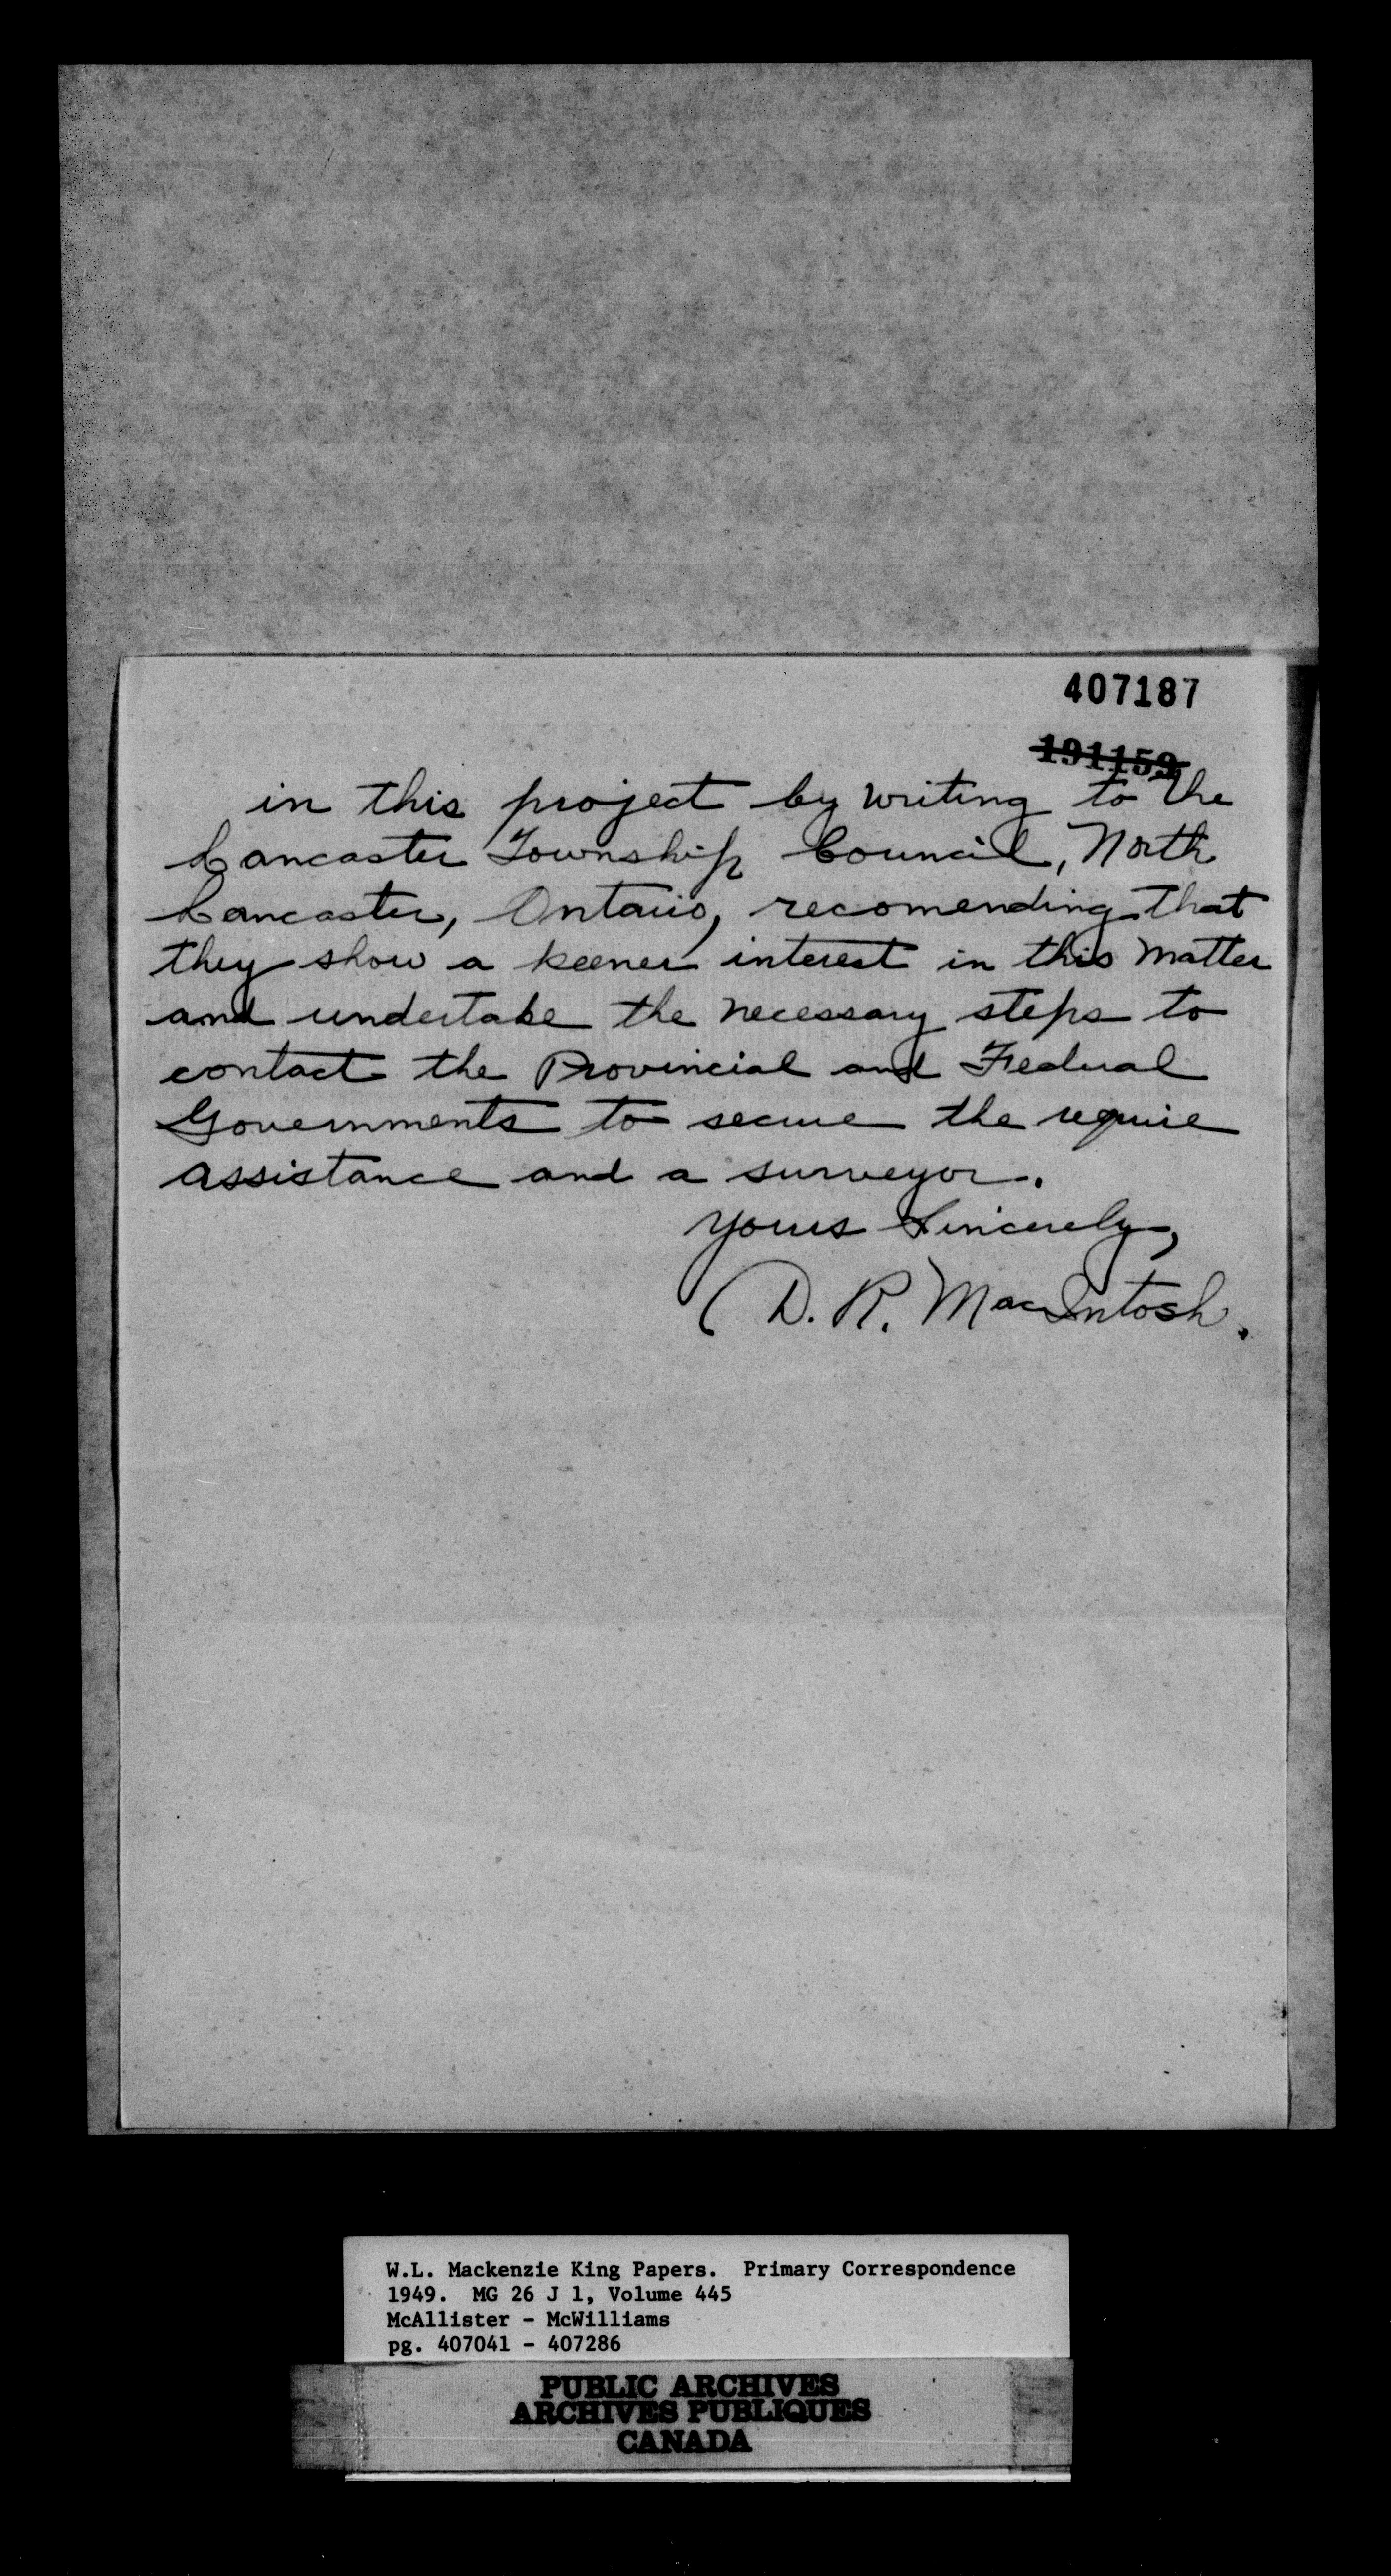 407187
191159
in this project by writing to the
Lancaster Township Council, North
Lancaster, Ontario, recomending that
they show a keener interest in this matter
and undertake the necessary steps to
contact the Provincial and Federal
Governments to secure the require
assistance and a surveyor.
Yours Sincerely,
D. R. MacIntosh.
W.L. Mackenzie King Papers. Primary Correspondence
1949. MG 26 J 1, Volume 445
McAllister - McWilliams
pg. 407041 - 407286
PUBLIC ARCHIVES
ARCHIVES PUBLIQUES
CANADA